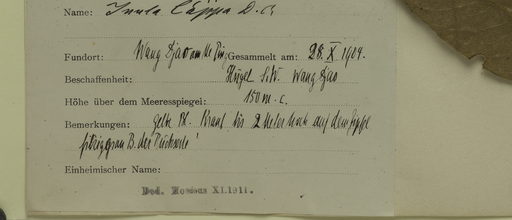 Name: Inula Cappa D.C.
Fundort: Wang Gesammelt am: 28. X 1904.
Beschaffenheit: Hügel S.W. Wang
Höhe über dem Meeresspiegel: 150 m. c.
Bemerkungen: gelbe Bl. Kraut bis 2 Meter hoch auf dem
B. der
Einheimischer Name:
Ded. XI.1911.